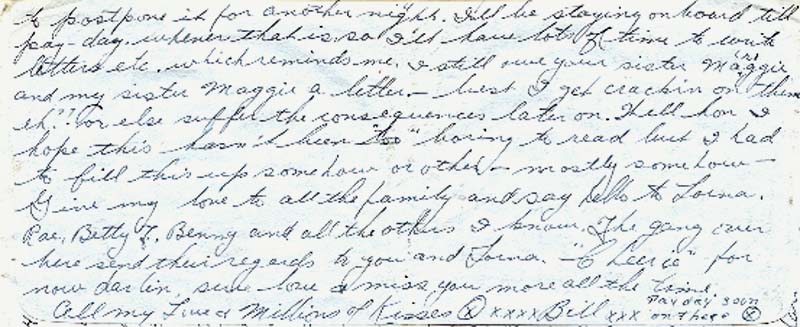 to postpone it for another night. I'll be staying on board till
pay-day whenever that is so I'll have lots of time to write
letters etc. which reminds me. I still owe your sister Maggie
and my sister Maggie a letter. – best I get crackin on them
eh?? or else suffer the consequences later on. Well hon I
hope this hasn't been "too" boring to read but I had
to fill this up somehow or other – mostly somehow –
Give my love to all the family and say hello to Lorna.
Rae, Betty L. Benny and all the others I know. The gang over
here send their regards to you and Lorna. – "Cheerie" for
now darlin, sure love & miss you more all the time.
All my Love & Millions of Kisses ⓧ xxxx Bill xxx Pay day soon
on there ⓧ